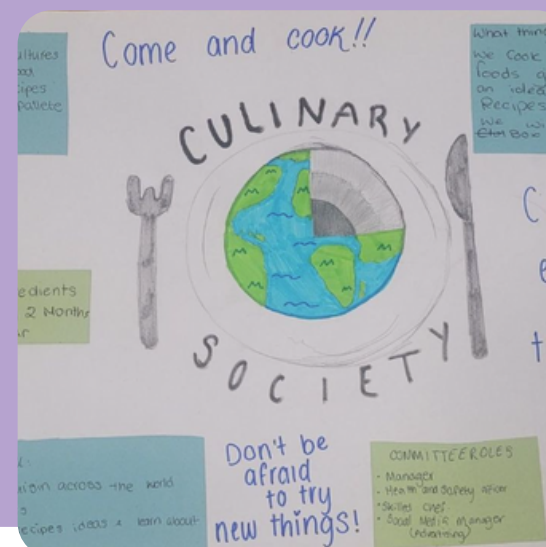 Come and cook!!
ultures
ipes
What thin
We Cook
foods a
an idea
Recipes
We wi
CULINARY
SOCIETY
C
e
t
edients
2 Months
r
across the world
ecipes ideas & learn about
Don't be
afraid
to try
new things!
COMMITTEE ROLES
- Manager
- Health and Safety officer
- Skilled Chef
- Social Media Manager
(Advertising)